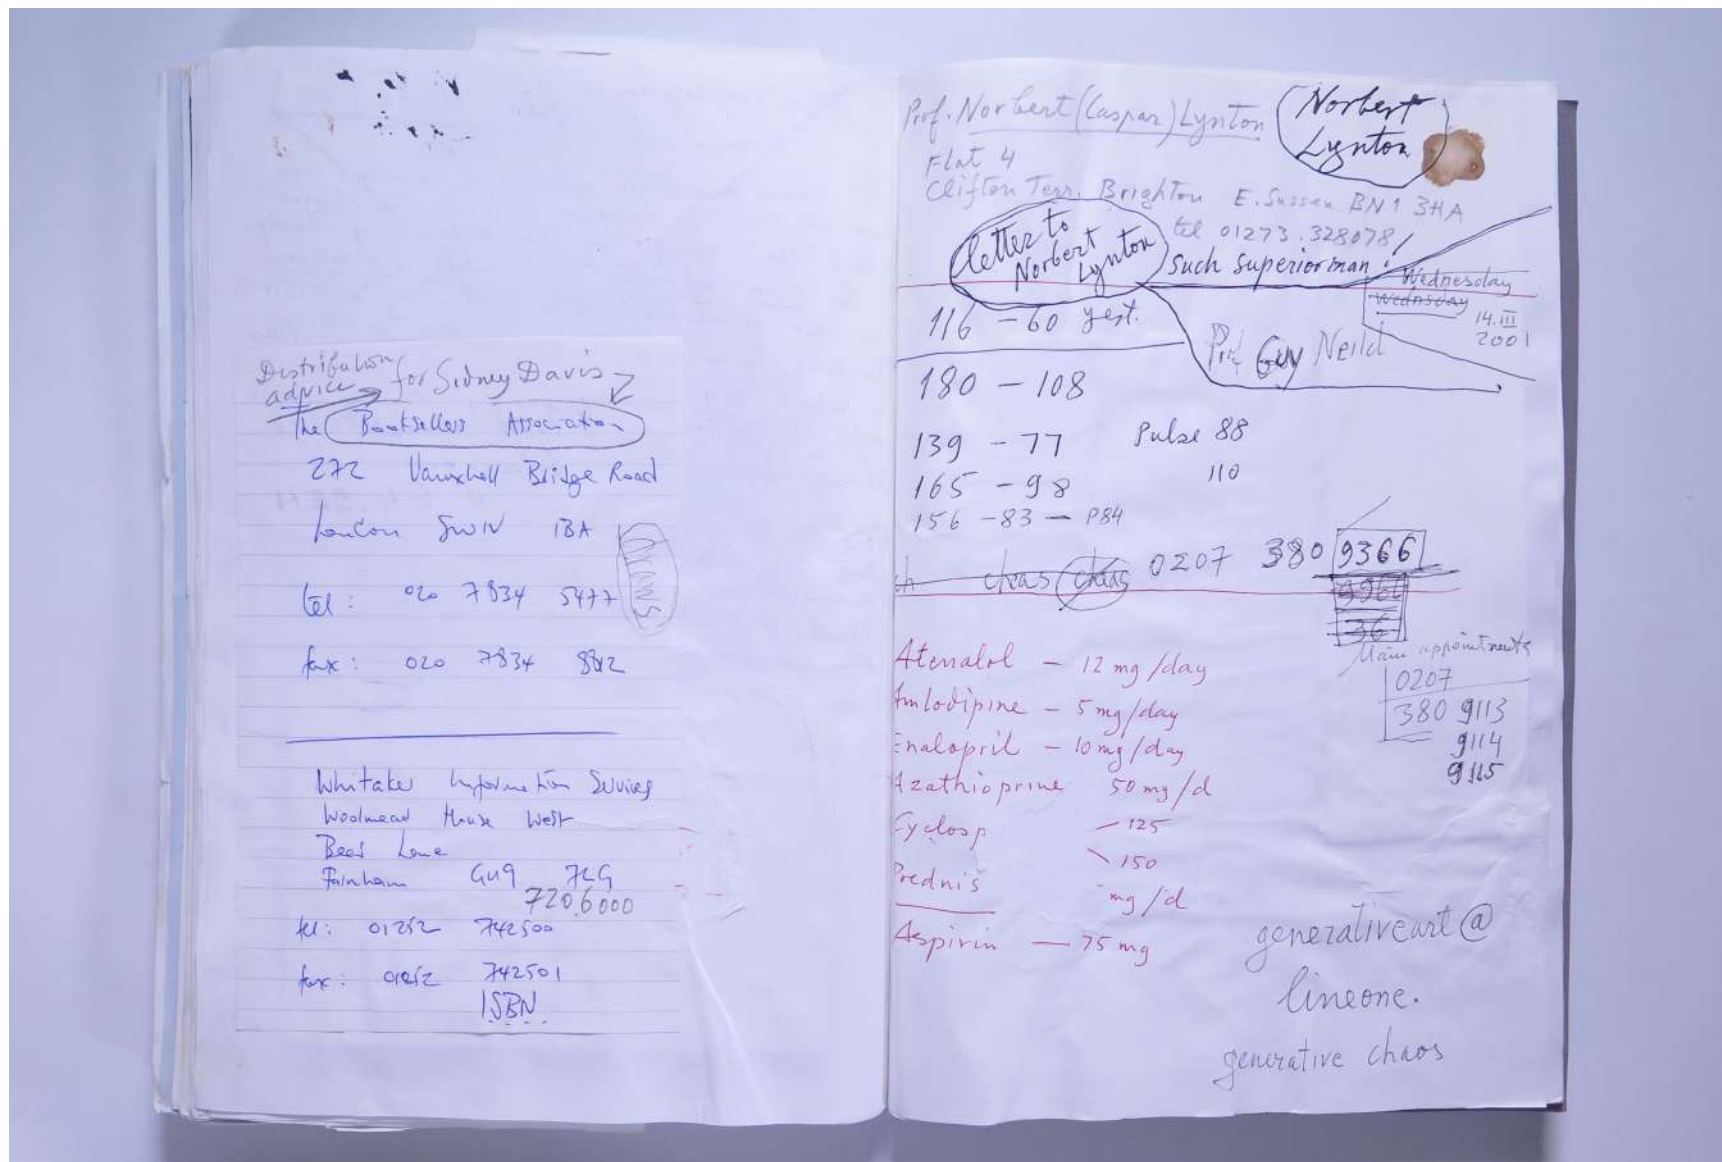 Distribution
advice for Sidney Davis
The Booksellers Association
272 Vauxhall Bridge Road
London SW1V 1BA
tel: 020 7834 5477
fax: 020 7834 8812
Whitaker Information Services
Woolmead House West
Bear Lane
Farnham GU9 7LG
720.6000
tel: 01252 742500
fax: 01252 742501
ISBN
Prof. Norbert (Caspar) Lynton
Norbert
Lynton
Flat 4
Clifton Terr. Brighton E. Sussex BN1 3HA
tel 01273.328078
letter to
Norbert
Lynton
such superior man!
Wednesday
Wednsday
14.III
2001
116 - 60 yest.
Prof Guy Neild
180 - 108
139 - 77 Pulse 88
165 - 98 110
156 - 83 - P84
ch chas chaos 0207 380 9366
36
Main appointments
0207
380 9113
9114
9115
Atenalol - 12 mg/day
Amlodipine - 5 mg/day
Enalopril - 10 mg/day
Azathioprine 50 mg/d
Cyclosp - 125
- 150
Prednis mg/d
Aspirin - 75 mg
generativeart@
lineone.
generative chaos